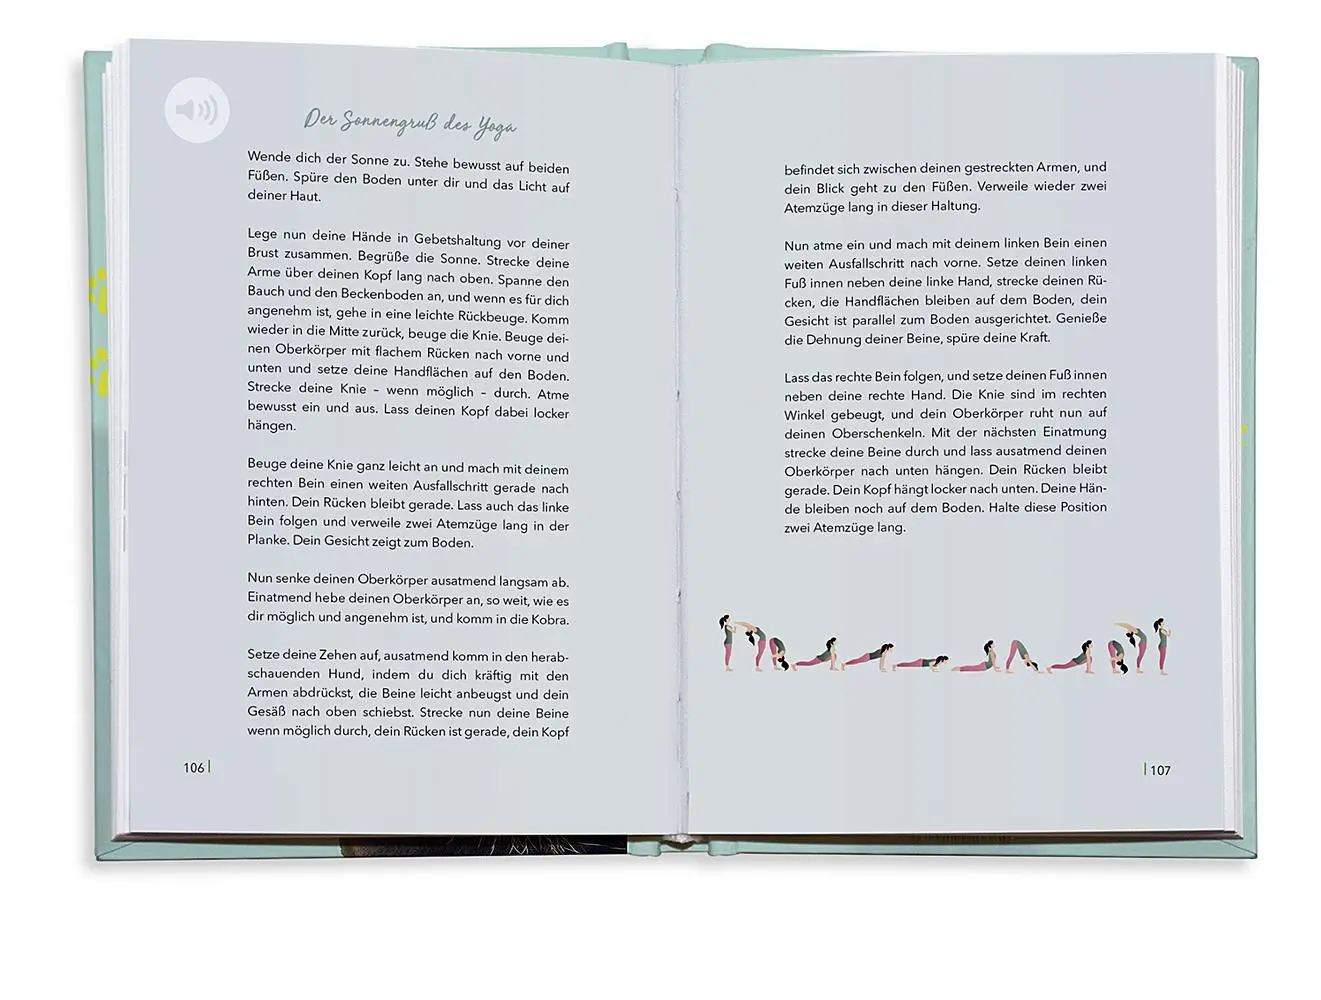 Der Sonnengruß des Yoga
Wende dich der Sonne zu. Stehe bewusst auf beiden
Füßen. Spüre den Boden unter dir und das Licht auf
deiner Haut.
Lege nun deine Hände in Gebetshaltung vor deiner
Brust zusammen. Begrüße die Sonne. Strecke deine
Arme über deinen Kopf lang nach oben. Spanne den
Bauch und den Beckenboden an, und wenn es für dich
angenehm ist, gehe in eine leichte Rückbeuge. Komm
wieder in die Mitte zurück, beuge die Knie. Beuge dei-
nen Oberkörper mit flachem Rücken nach vorne und
unten und setze deine Handflächen auf den Boden.
Strecke deine Knie – wenn möglich – durch. Atme
bewusst ein und aus. Lass deinen Kopf dabei locker
hängen.
Beuge deine Knie ganz leicht an und mach mit deinem
rechten Bein einen weiten Ausfallschritt gerade nach
hinten. Dein Rücken bleibt gerade. Lass auch das linke
Bein folgen und verweile zwei Atemzüge lang in der
Planke. Dein Gesicht zeigt zum Boden.
Nun senke deinen Oberkörper ausatmend langsam ab.
Einatmend hebe deinen Oberkörper an, so weit, wie es
dir möglich und angenehm ist, und komm in die Kobra.
Setze deine Zehen auf, ausatmend komm in den herab-
schauenden Hund, indem du dich kräftig mit den
Armen abdrückst, die Beine leicht anbeugst und dein
Gesäß nach oben schiebst. Strecke nun deine Beine
wenn möglich durch, dein Rücken ist gerade, dein Kopf
106
befindet sich zwischen deinen gestreckten Armen, und
dein Blick geht zu den Füßen. Verweile wieder zwei
Atemzüge lang in dieser Haltung.
Nun atme ein und mach mit deinem linken Bein einen
weiten Ausfallschritt nach vorne. Setze deinen linken
Fuß innen neben deine linke Hand, strecke deinen Rü-
cken, die Handflächen bleiben auf dem Boden, dein
Gesicht ist parallel zum Boden ausgerichtet. Genieße
die Dehnung deiner Beine, spüre deine Kraft.
Lass das rechte Bein folgen, und setze deinen Fuß innen
neben deine rechte Hand. Die Knie sind im rechten
Winkel gebeugt, und dein Oberkörper ruht nun auf
deinen Oberschenkeln. Mit der nächsten Einatmung
strecke deine Beine durch und lass ausatmend deinen
Oberkörper nach unten hängen. Dein Rücken bleibt
gerade. Dein Kopf hängt locker nach unten. Deine Hän-
de bleiben noch auf dem Boden. Halte diese Position
zwei Atemzüge lang.
107